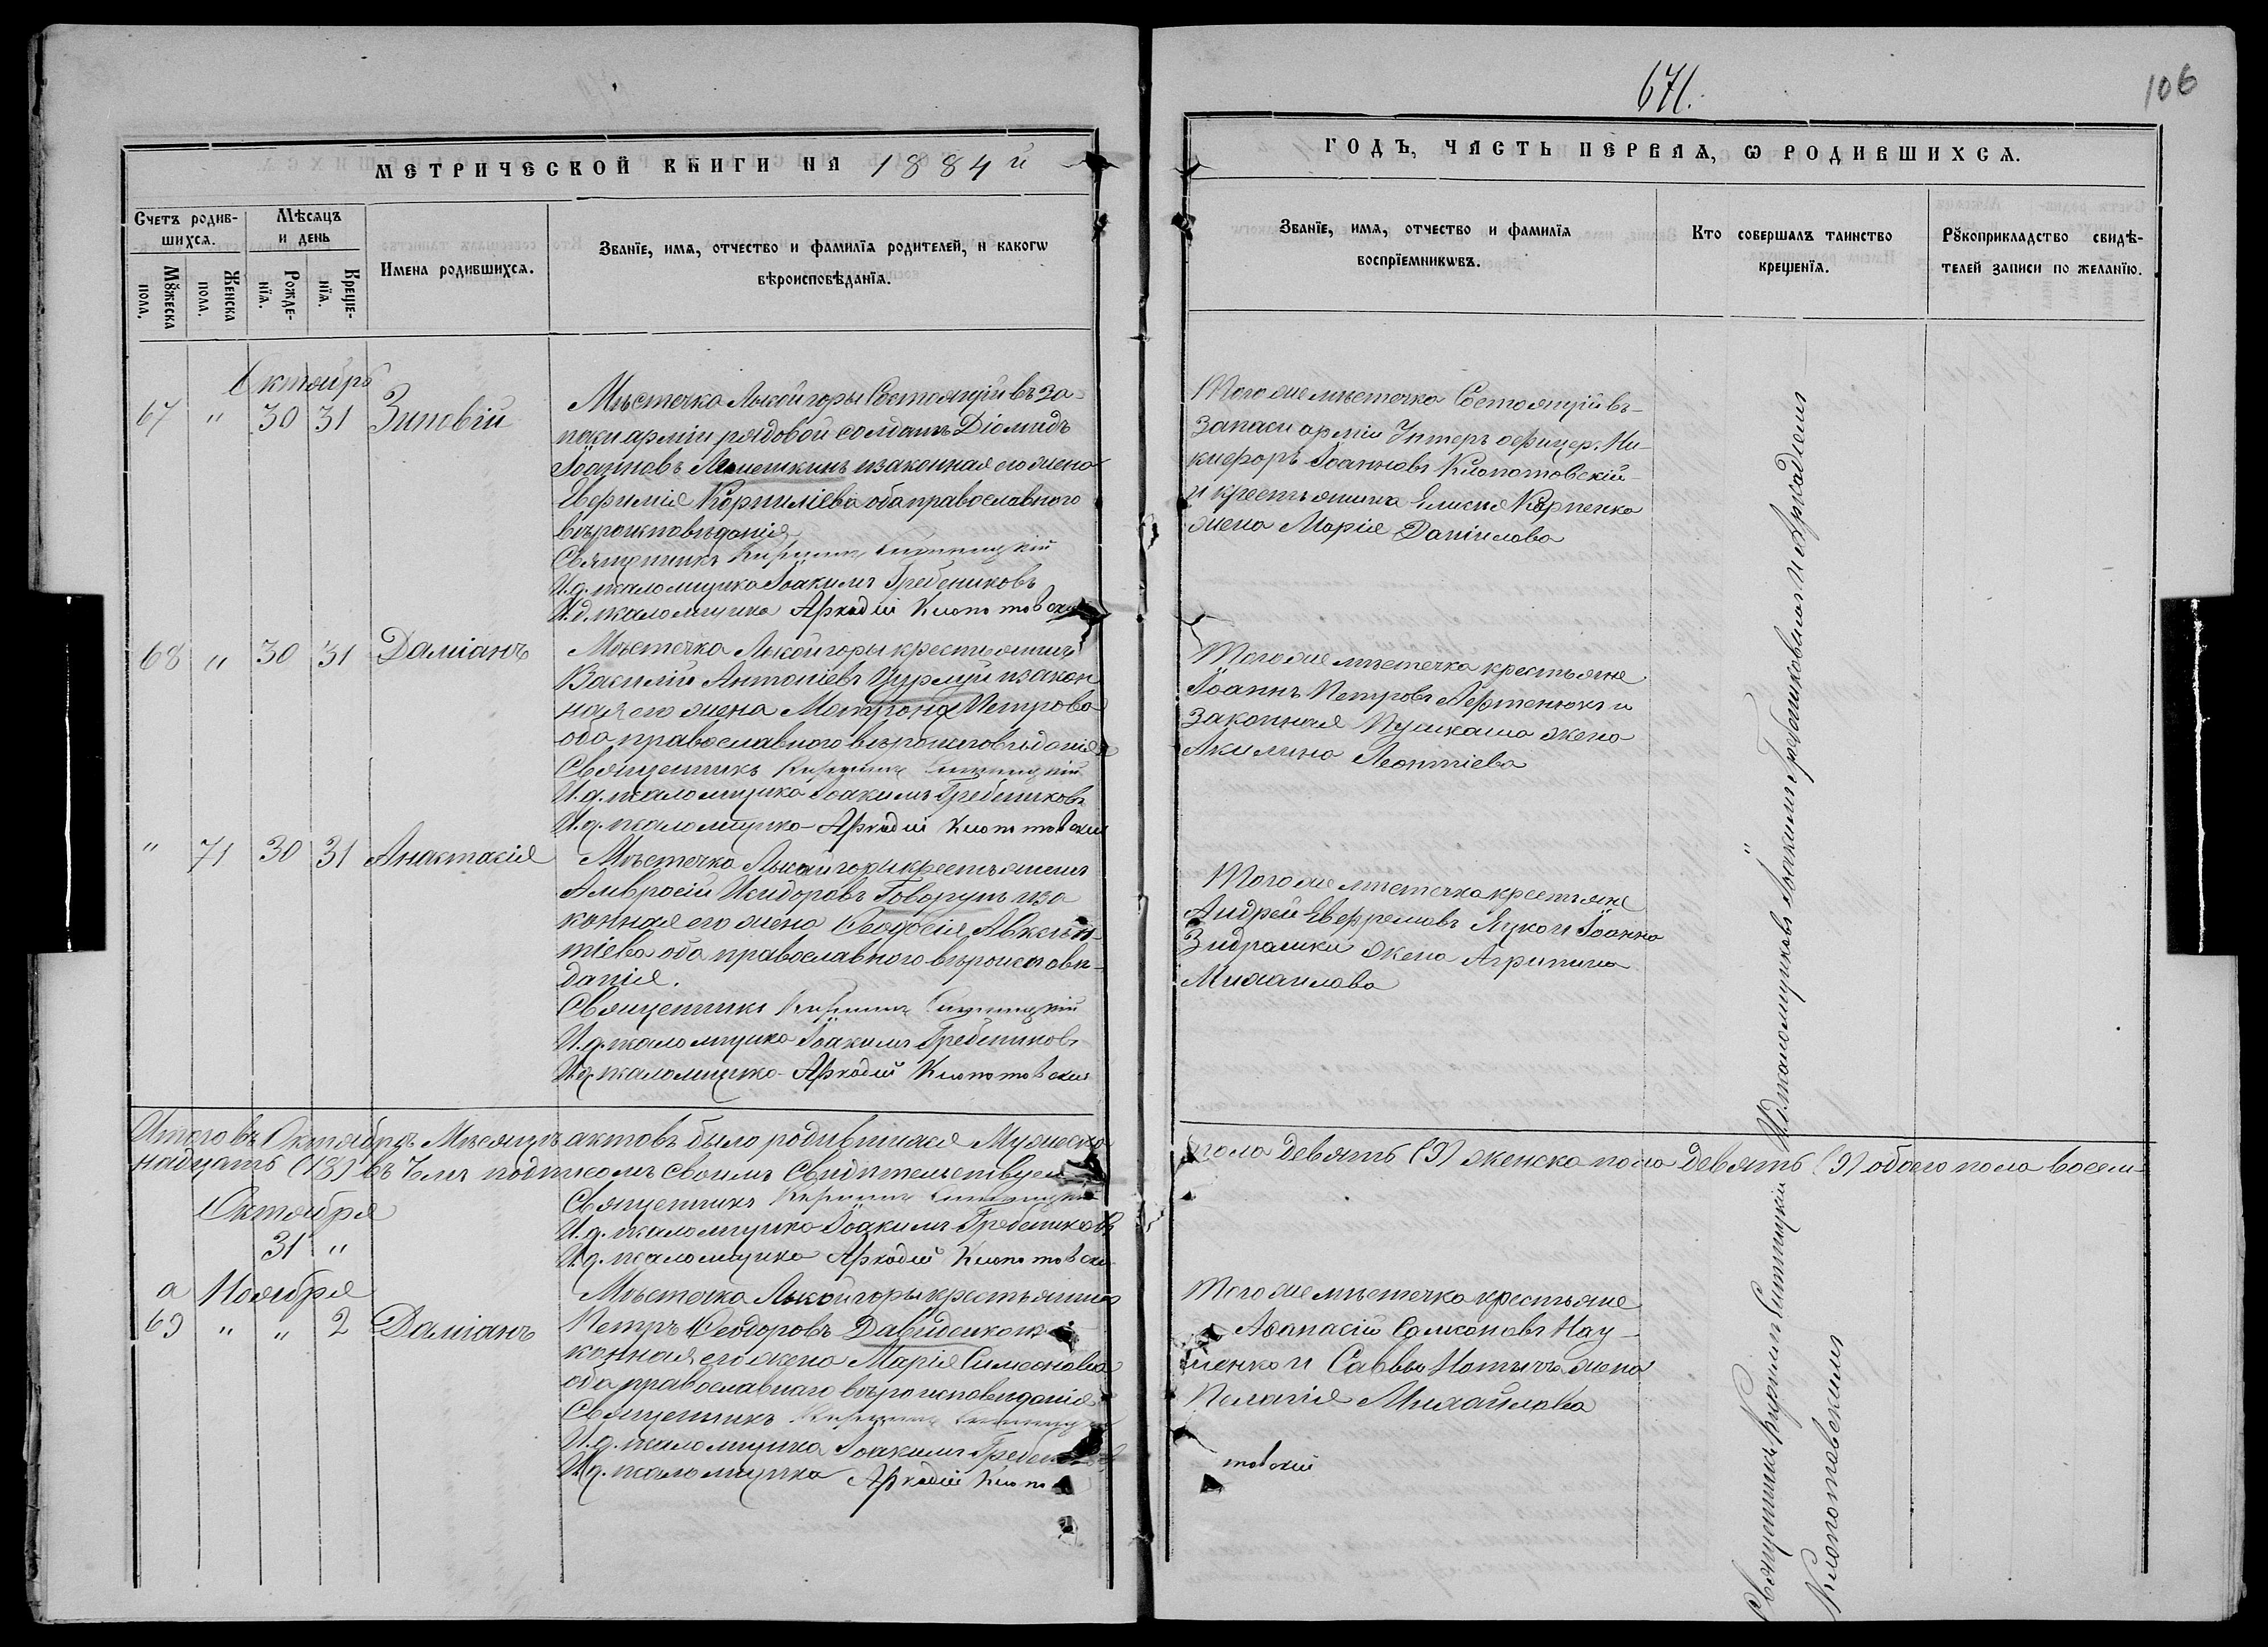 671.
106
МЕТРИЧЕСКОЙ КНИГИ НА 1884й
ГОДЪ, ЧАСТЬ ПЕРВАЯ, Ѡ РОДИВШИХСЯ.
Счетъ родив-
шихся.
Мѣсяцъ
и день
Мꙋжеска
пола.
Женска
пола.
Рожде-
нїя.
Креще-
нїя.
Имена родившихся.
Званїе, имя, отчество и фамилїя родителей, и какогѡ
вѣроисповѣданїя.
Званїе, имя, отчество и фамилїя
воспрїемникѡвъ.
Кто совершалъ таинство
крещенїя.
Рꙋкоприкладство свидѣ-
телей записи по желанїю.
Октябрь
67 " 30 31 Зиновій
Мѣстечка Лысойгоры Состоящій въ за-
паси арміи рядовой солдатъ Діомидъ
Іоанновъ изаконная его жена
Евфимія Корниліева оба православного
вѣроисповѣданія
Священникъ
И.д. псаломщика Іоакимъ Гребениковъ
И.д. псаломщика Аркадій Клопотовскій
Того же местечка Состоящій въ
Запаси арміи Унтеръ офицер. Ни-
кифоръ Іоанновъ Клопотовскій
и крестьянина Елисея Карпенка
жена Марія Даніилова
68 " 30 31 Даміанъ
Мѣстечка Лысойгоры крестьянинъ
Василій Антоніевъ изакон
ная его жена Матрона Петрова
оба православного вѣроисповѣданія
Священникъ
И.д. псаломщика Іоакимъ Гребениковъ
И.д. псаломщика Аркадій Клопотовскій
Того же мѣстечка крестьяне
Іоаннъ Петровъ и
законная жена
Акилина Леонтіева
" 71 30 31 Анастасія
Мѣстечка Лысойгоры крестьянинъ
Амвросій Исидоровъ Говорунъ иза
конная его жена Ѳеодосія Авксен-
тіева оба православного вѣроисповѣ-
данія.
Священникъ
И.д. псаломщика Іоакимъ Гребениковъ
И.д. псаломщика Аркадій Клопотовскій
Того же мѣстечка крестьяне
Андрей Евфремовъ Яцко и Іоанна
жена Агрипина
Михаилова
Итого въ Октябрѣ Мѣсяцѣ актовъ было родившихся Мужеско
пола Девять (9) женска пола Девять (9) обоего пола восем-
надцать (18) въ чемъ подписомъ своимъ Свидѣтельствуем
Октября
31 "
Священникъ
И.д. псаломщика Іоакимъ Гребениковъ
И.д. псаломщика Аркадій Клопотовскій
а Ноября
69 " " 2 Даміанъ
Мѣстечка Лысойгоры крестьянинъ
Петръ Ѳеодоровъ Давиденко иза
конная его жена Марія Симеонова
оба православнаго вѣроисповѣданія
Священникъ
И.д. псаломщика Іоакимъ Гребениковъ
И.д. псаломщика Аркадій Клопо
товскій
Того же мѣстечка крестьяне
Аѳанасій Самсоновъ Нау-
менко и Саввы жена
Пелагія Михайлова
Священникъ Кириллъ Синицкій И.д. псаломщиковъ Іоакимъ Гребениковымъ и Аркадіемъ
Клопотовскимъ